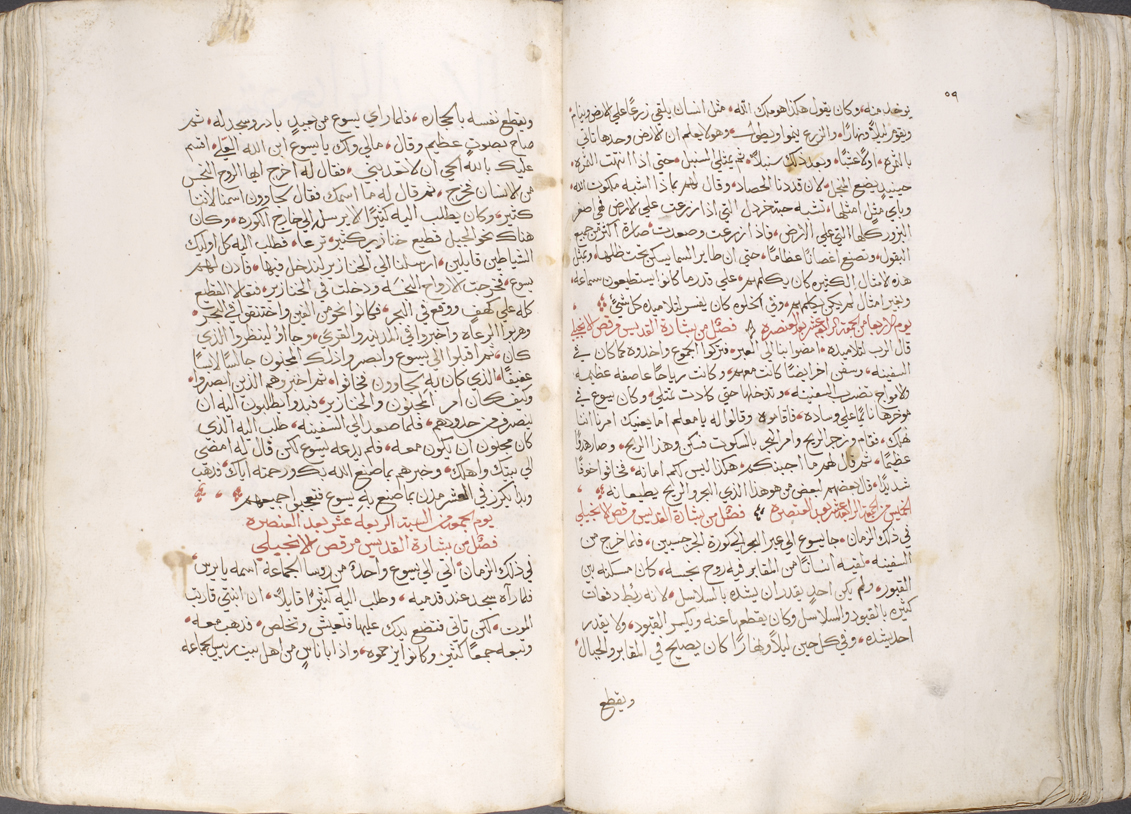 ٥٩
يوخد منه وكان يقول هكذا هو ملك الله مثل انسان يلقي زرعًا على الارض وينام
ويقوم ليلاً ونهارًا والزرع ينموا ويطول وهو لا يعلم ان الارض وحدها تاتي
بالثمره اولاً عشبًا وبعد ذلك سنبلاً ثم يمتلي السنبل حتى اذا انتهت الثمره
حينيدٍ يضع المنجل لان قد دنا الحصاد وقال لهم بماذا اشبه ملكوت الله
وباي مثل امثلها تشبه حبة خردل التي اذا زرعت علي الارض فهي اصغر
البزور كلها التي على الارض فاذا زرعت وصعدت صارة اكثر من جميع
البقول وتصنع اغصانًا عظامًا حتى ان طاير السما يسكن تحت ظلها وبمثل
هذه الامثال الكثيره كان يكلمهم على قدر ما كانوا يستطيعون سماعه
وبغير امثال لم يكن يكلمهم وفي الخلوه كان يفسر لتلاميده كل شي
يوم الاربعا من الجمعه الرابعة عشر بعد العنصره فصل من بشارة القديس مرقص الانجيلي
قال الرب لتلاميده امضوا بنا الى العبر فتركوا الجموع واخدوه كما كان في
السفينه وسفن اخر ايضًا كانت معهم وكانت رياحًا عاصفه عظيمه
والامواج تضرب السفينه وتدخلها حتى كادت تمتلي وكان يسوع في
موخرها نايمًا على وساده فاقاموه وقالوا له يا معلم اما يعنيك امرنا اننا
نهلك فقام وزجر الريح وامر البحر بالسكوت فسكن وهدا الريح وصار هدوًا
عظيمًا ثم قال لهم ما اجبنكم هكذا ليس لكم امانه فخافوا خوفًا
شديدًا وقال بعضهم لبعض من هو هذا الذي البحر والريح يطيعانه
الخميس من الجمعة الرابعة عشر بعد العنصره فصل من بشارة القديس مرقص الانجيلي
في ذلك الزمان جا يسوع الى عبر البحر الى كورة الجرجسيين فلما خرج من
السفينه لقيه انسانًا من المقابر فيه روح نجسه كان مسكنه بين
القبور ولم يكن احدٍ يقدر ان يشده بالسلاسل لانه ربط دفعات
كثيره بالقيود والسلاسل وكان يقطعها عنه ويكسر القيود ولا يقدر
احد يشده وفي كل حين ليلاً ونهارًا كان يصيح في المقابر والجبال
ويقطع
ويقطع نفسه بالحجاره فلما راى يسوع من بعيدٍ بادر وسجد له ثم
صاح بصوت عظيم وقال مالي ولك يا يسوع ابن الله العلي اقسم
عليك بالله الحي ان لا تعدبني فقال له اخرج ايها الروح النجس
من الانسان فخرج ثم قال له ما اسمك فقال لجاوون اسمنا لاننا
كثير وكان يطلب اليه كثيرًا الا يرسله الى خارج الكوره وكان
هناك نحو الجبل قطيع خنازير كثير ترعا فطلب اليه كل اوليك
الشياطين قايلين ارسلنا الى الخنازير لندخل فيها فادن لهم
يسوع فخرجت الارواح النجسه ودخلت في الخنازير فتعلا القطيع
كله على كهف ووقع في البحر فكانوا نحو من الفين واختنقوا في البحر
وهربوا الرعاه واخبروا في المدينه والقرى وجاؤ لينظروا الذي
كان ثم اقبلوا الى يسوع وابصروا ذلك المجنون جالسًا لابسًا
عفيفًا الذي كان به لجاوون فخافوا ثم اخبروهم الذين ابصروا
وكيف كان امر المجنون والخنازير فبدوا يطلبون اليه ان
ينصرف من حدودهم فلما صعد الى السفينه طلب اليه الذي
كان مجنون ان يكون معه فلم يدعه يسوع لكن قال له امضي
الى بيتك واهلك وخبرهم بما صنع الله بك ورحمته اياك فدهب
وبدا يكرز في العشر مدن بما صنع به يسوع فتعجبوا جميعهم
يوم الجمعه من السبة الرابعه عشر بعد العنصره
فصل من بشارة القديس مرقص الانجيلي
في ذلك الزمان اتى الى يسوع واحدًا من روسا الجماعة اسمه يايرس
فلما رآه سجد عند قدميه وطلب اليه كثيرًا قايلاً ان ابنتي قاربت
الموت لكن تاتي فتضع يدك عليها فتعيش وتخلص فدهب معه
وتبعه جمعًا كثير وكانوا يزحموه واذا باناسٍ من اهل بيت رييس الجماعه